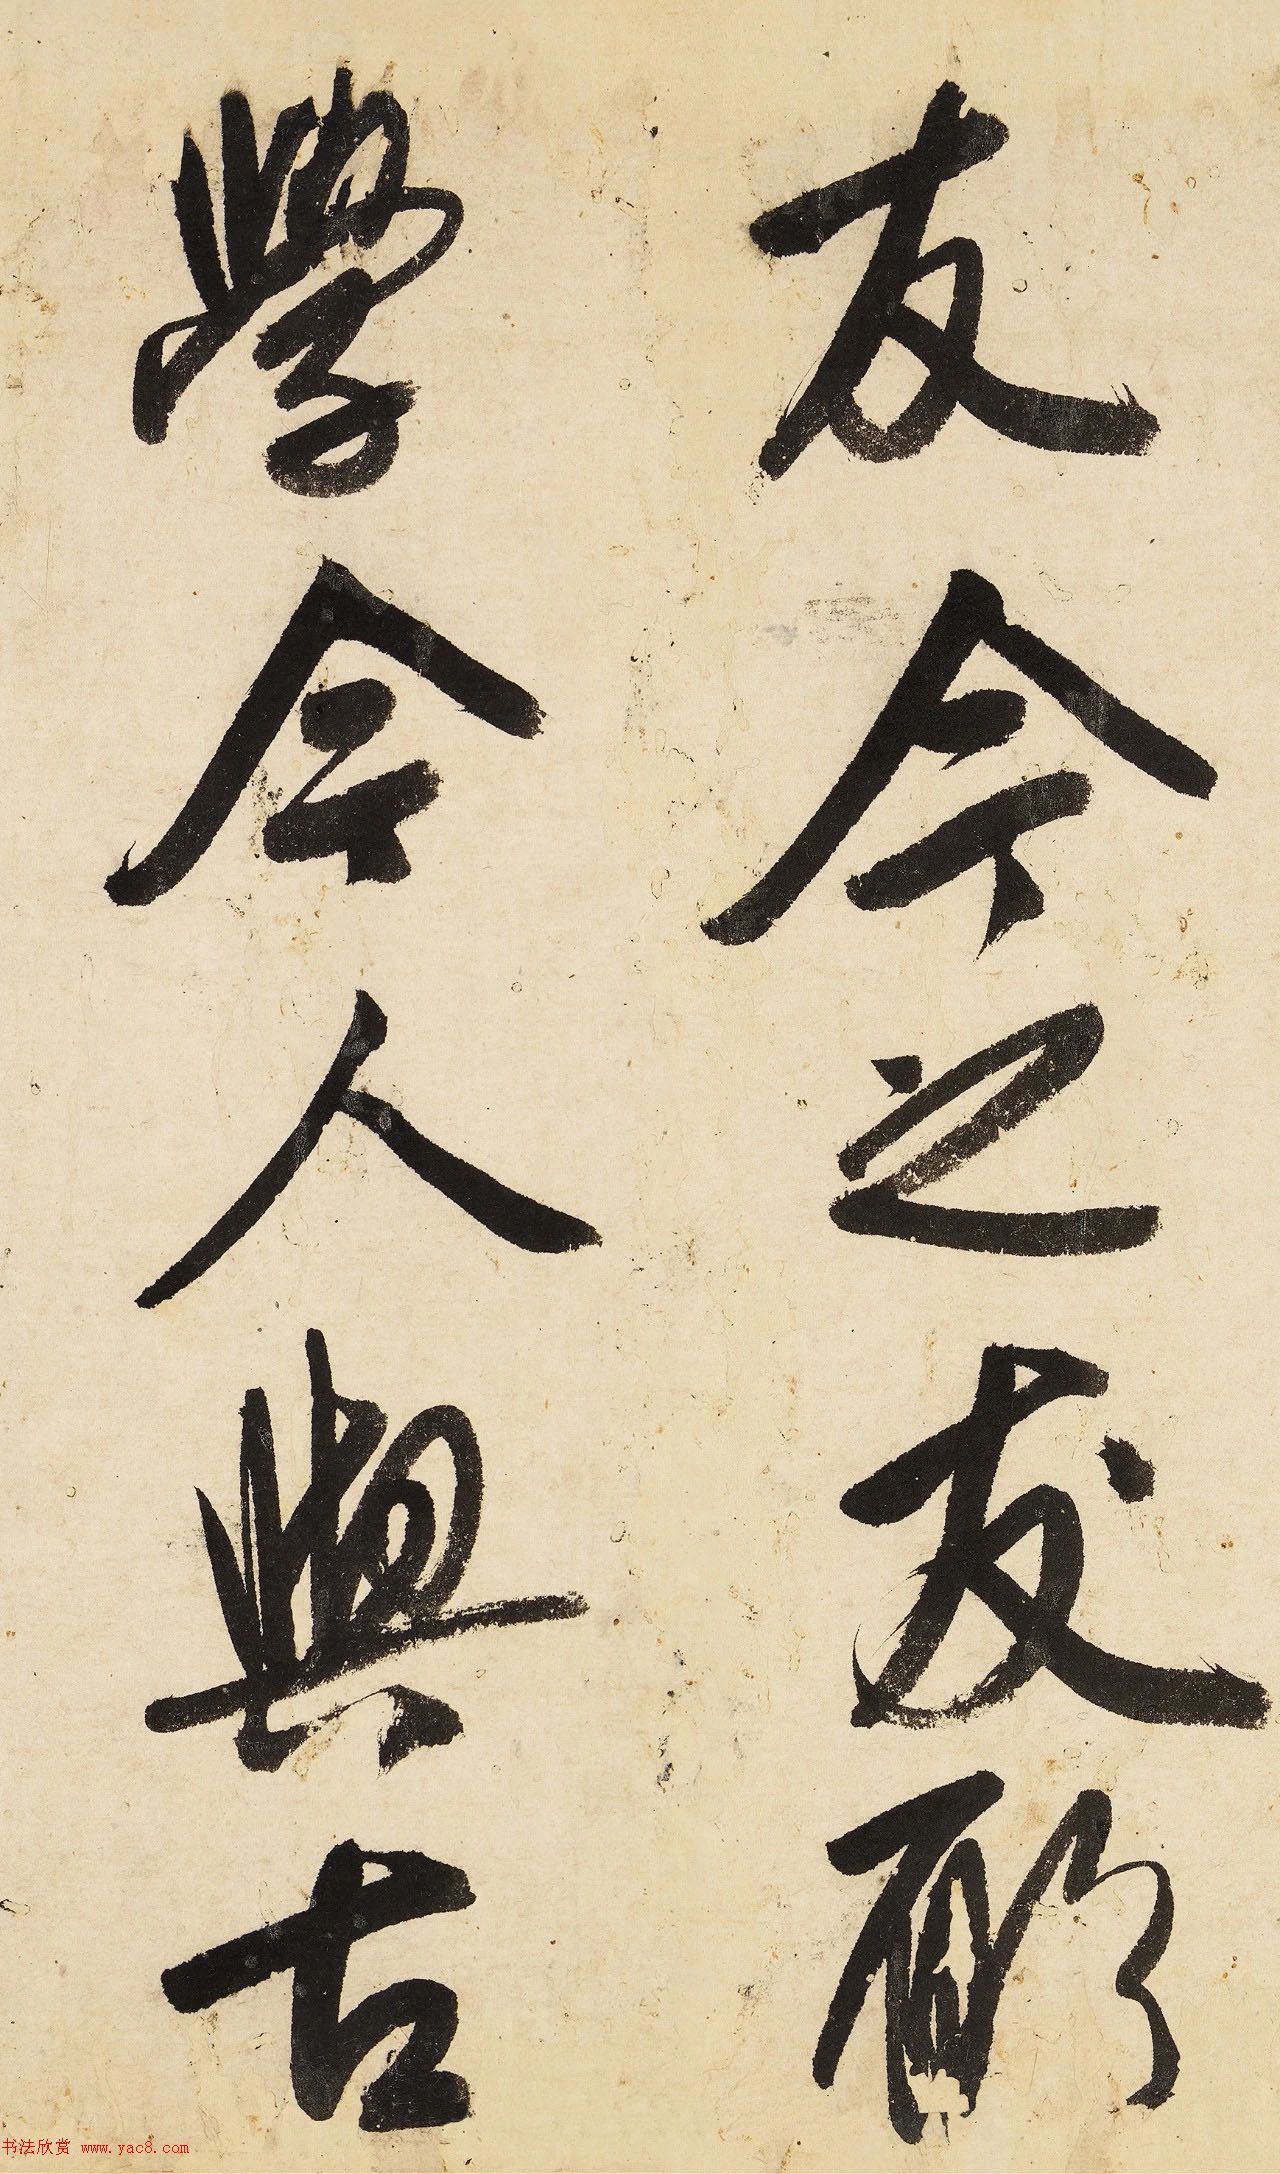 友今之友願
學今人與古
书法欣赏 www.yac8.com